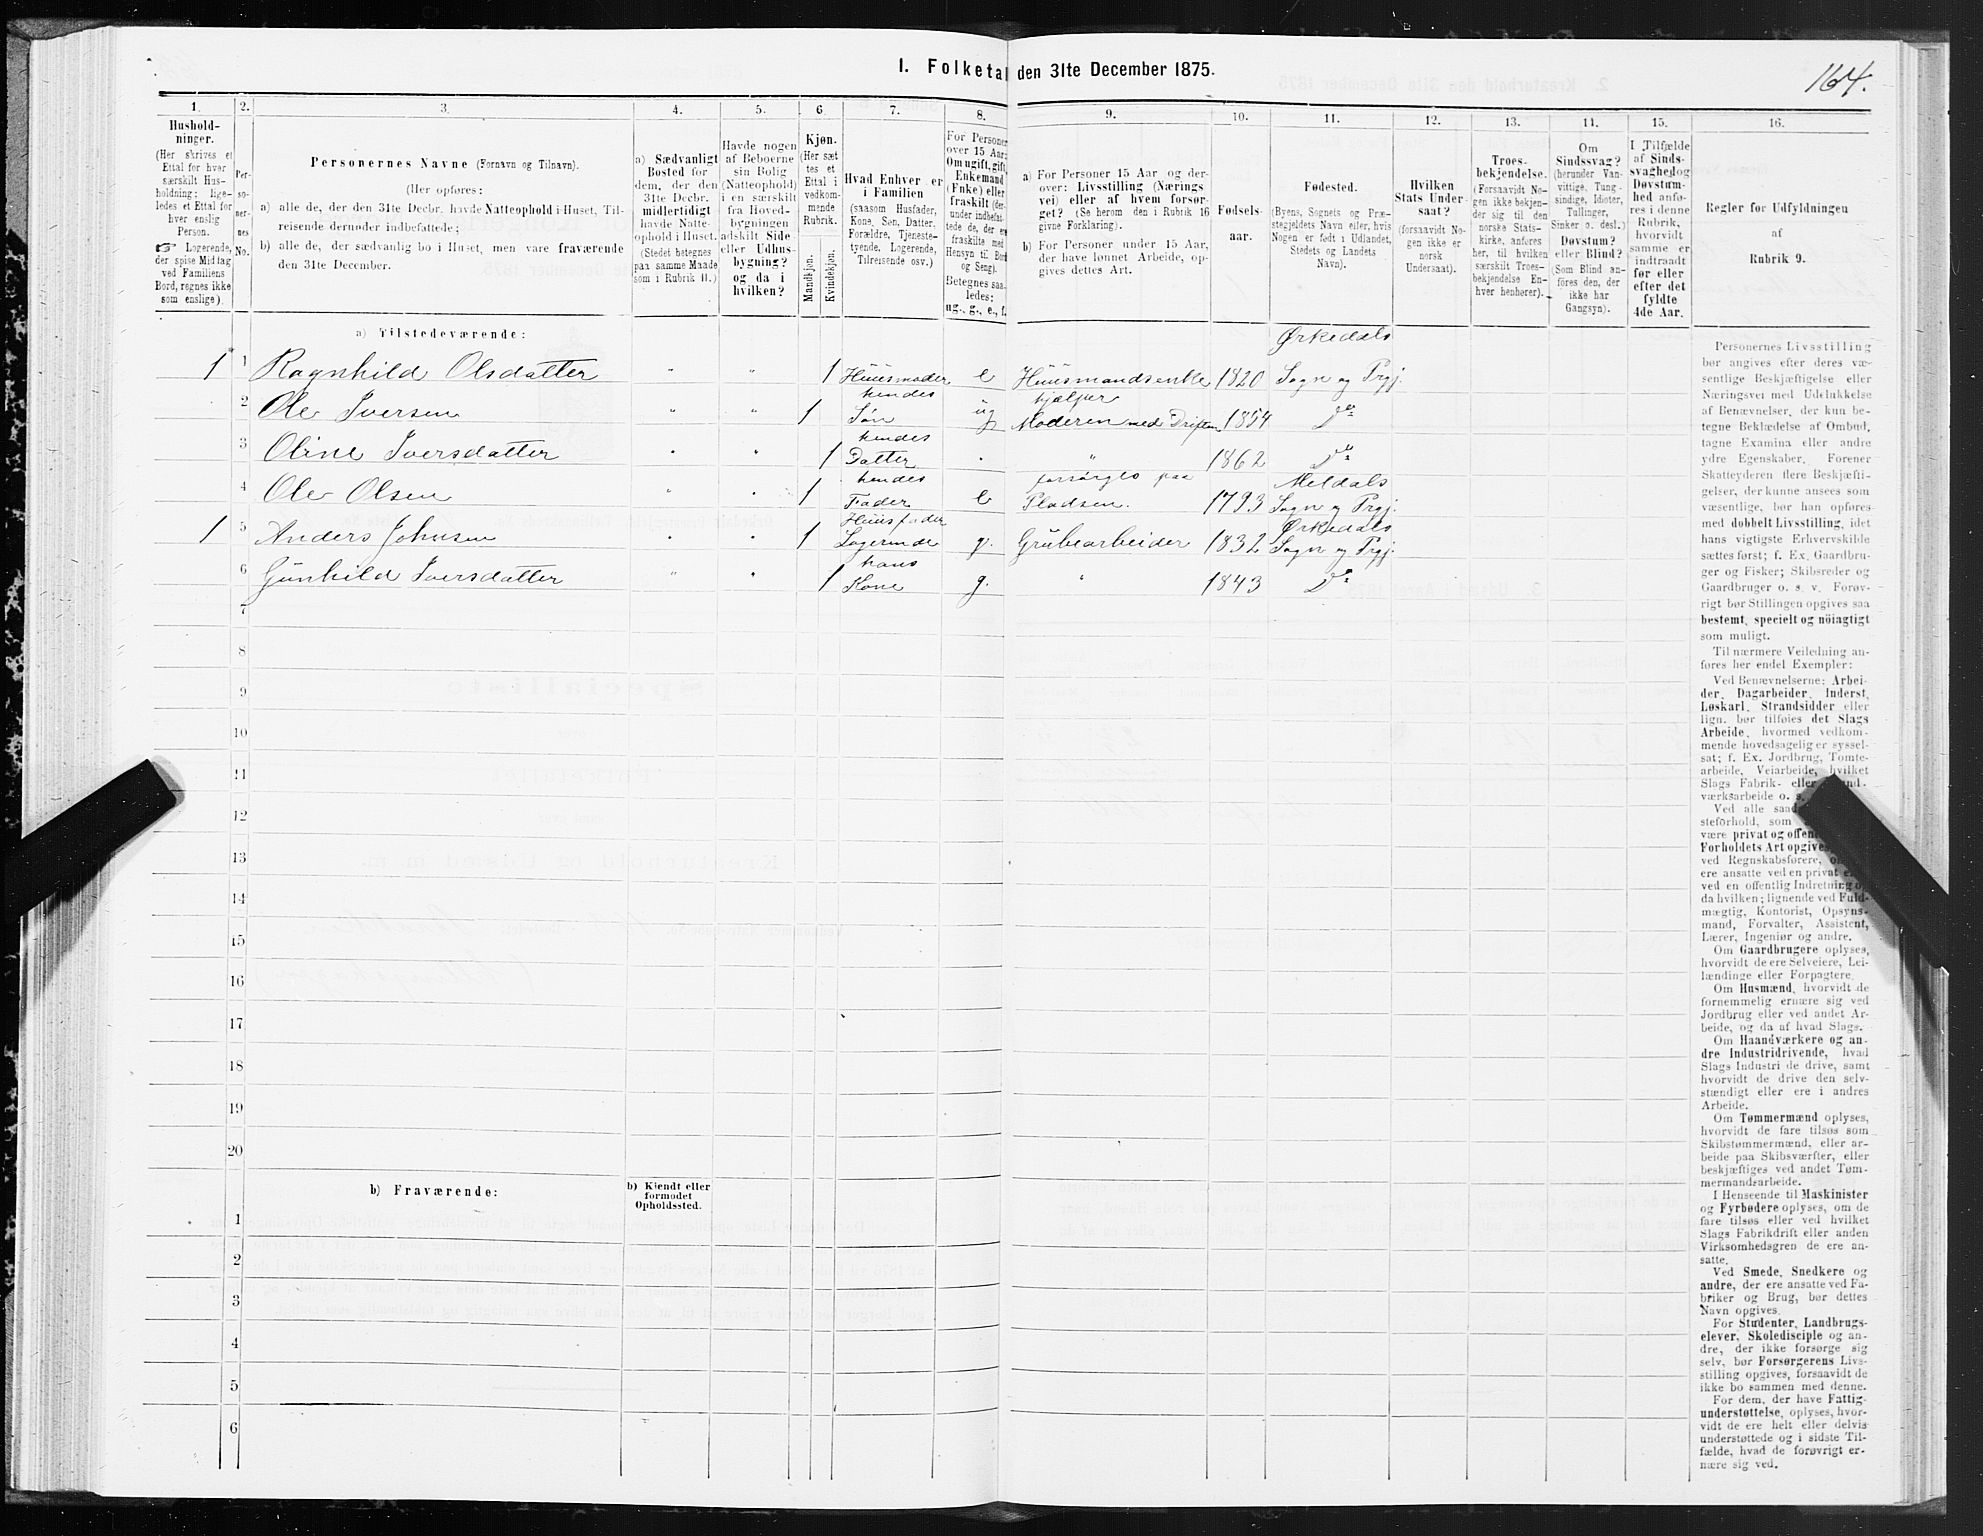 I. Folketal den 31te December 1875.
164.
1.
Hushold-
ninger.
(Her skrives et
Ettal for hver
særskilt Hus-
holdning; lige-
ledes et Ettal for
hver enslig
Person.
Logerende,
der spise Midtag
ved Familiens
Bord, regnes ikke
som enslige).
2.
Per-
so-
ner-
nes
No.
3.
Personernes Navne (Fornavn og Tilnavn).
(Her opføres:
a) alle de, der den 31te Decbr. havde Natteophold i Huset, Til-
reisende derunder indbefattede;
b) alle de, der sædvanlig bo i Huset, men vare fraværende
den 31te December.
4.
a) Sædvanligt
Bosted for
dem, der den
31te Decbr.
midlertidigt
havde Natte-
ophold i Huset.
(Stedet betegnes
paa samme Maade
som i Rubrik 11.)
5.
Havde nogen
af Beboerne
sin Bolig
(Natteophold)
i en særskilt
fra Hoved-
bygningen
adskilt Side-
eller Udhus-
bygning?
og da i
hvilken?
6
Kjøn.
(Her sæt
tes et
Ettal i
vedkom-
mende
Rubrik.
Mandkjøn.
Kvindekjøn.
7.
Hvad Enhver er
i Familien
(saasom Husfader,
Kone, Søn, Datter,
Forældre, Tjeneste-
tyende, Logerende,
Tilreisende osv.)
8.
For Personer
over 15 Aar:
Om ugift, gift,
Enkemand
(Enke) eller
fraskilt (der-
under indbefat-
tede de, der ere
fraskilte med
Hensyn til Bord
og Seng).
Betegnes saa-
ledes:
ug., g., e., f.
9.
a) For Personer 15 Aar og der-
over: Livsstilling (Nærings
vei) eller af hvem forsør-
get? (Se herom den i Rubrik 16
givne Forklaring).
b) For Personer under 15 Aar,
der have lønnet Arbeide, op-
gives dettes Art.
10.
Fødsels-
aar.
11.
Fødested.
(Byens, Sognets og Præ-
stegjeldets Navn eller, hvis
Nogen er født i Udlandet,
Stedets og Landets
Navn).
12.
Hvilken
Stats Under-
saat?
(forsaavidt No-
gen ikke er
norsk
Undersaat).
13.
Troes-
bekjendelse.
(Forsaavidt No-
gen ikke bekjen-
der sig til den
norske Stats-
kirke, anføres
her, til hvilken
særskilt Troes-
bekjendelse En-
hver henhører).
14.
Om
Sindssvag?
(herunder Van-
vittige, Tung-
sindige, Idioter,
Tullinger,
Sinker o. desl.)
Døvstum?
eller Blind?
(Som Blind an-
føres den, der
ikke har
Gangsyn).
15.
I Tilfælde
af Sinds-
svaghed og
Døvstum-
hed anfø-
res i denne
Rubrik,
hvorvidt
samme er
indtraadt
før eller
efter det
fyldte
4de Aar.
16.
Regler for Udfyldningen
af
Rubrik 9.
a) Tilstedeværende:
Ørkedals
1 1 Ragnhild Olsdatter " " 1 Huusmoder e Huusmandsenke 1820 Sogn og Prgj.
hendes hjælper
2 Ole Iversen " " 1 Søn ug Moderen med Driften 1854 Do
hendes
3 Oline Iversdatter " " 1 Datter " " 1862 Do
hendes forsørges paa Meldals
4 Ole Olsen " " 1 Fader e Pladsen. 1793 Sogn og Prgj.
Huusfader Ørkedals
1 5 Anders Johnsen " " 1 Logerende g. Grubearbeider 1832 Sogn og Prgj.
hans
6 Gunhild Iversdatter " " 1 Kone g. " 1843 Do
7
8
9
10
11
12
13
14
15
16
17
18
19
20
b) Fraværende:
b) Kjendt eller
formodet
Opholdssted.
1
2
3
4
5
6
Personernes Livsstilling
bør angives efter deres væ-
sentlige Beskjæftigelse eller
Næringsvei med Udelukkelse
af Benævnelser, der kun be-
tegne Beklædelse af Ombud,
tagne Examina eller andre
ydre Egenskaber. Forener
Skatteyderen flere Beskjæfti-
gelser, der kunne ansees som
væsentlige, bør han opføres
med dobbelt Livsstilling, idet
hans vigtigste Erhvervskilde
sættes først; f. Ex. Gaardbru-
ger og Fisker; Skibsreder og
Gaardbruger o. s. v. Forøv-
rigt bør Stillingen opgives saa
bestemt, specielt og nöiagtigt
som muligt.
Til nærmere Veiledning an-
føres her endel Exempler:
Ved Benævnelserne: Arbei-
der, Dagarbeider, Inderst,
Løskarl, Strandsidder eller
lign. bør tilføies det Slags
Arbeide, hvormed vedkom-
mende hovedsagelig er syssel-
sat; f. Ex. Jordbrug, Tomte-
arbeide, Veiarbeide, hvilket
Slags Fabrik- eller
værksarbeide o. s.
Ved alle
steforhold, som
være privat og
Forholdets Art opgives,
ved Regnskabsførere,
ere ansatte ved en privat
ved en offentlig Indretning
da hvilken; lignende ved Fuld-
mægtig, Kontorist, Opsyns-
mand, Forvalter, Assistent,
Lærer, Ingeniør og andre.
Om Gaardbrugere oplyses,
hvorvidt de ere Selveiere, Lei-
lændinge eller Forpagtere.
Om Husmænd, hvorvidt de
fornemmelig ernære sig ved
Jordbrug eller ved andet Ar-
beide, og da af hvad Slags.
Om Haandværkere og an-
dre Industridrivende, hvad
Slags Industri de drive, samt
hvorvidt de drive den selv-
stændigt eller ere i andres
Arbeide.
Om Tømmermænd oplyses,
hvorvidt de fare tilsøs som
Skibstømmermænd, eller ar-
beide paa Skibsværfter, eller
beskjæftiges ved andet Tøm-
mermandsarbeide.
I Henseende til Maskinister
og Fyrbødere oplyses, om de
fare tilsøs eller ved hvilket
Slags Fabrikdrift eller anden
Virksomhedsgren de ere an-
satte.
Ved Smede, Snedkere og
andre, der ere ansatte ved Fa-
briker og Brug, bør dettes
Navn opgives.
For Studenter, Landbrugs-
elever, Skoledisciple og an-
dre, der ikke forsørge sig
selv, bør Forsørgerens Livs-
stilling opgives, forsaavidt de
ikke bo sammen med denne.
For dem, der have Fattig-
understøttelse, oplyses, hvor-
vidt de ere helt eller delvis
understøttede og i sidste Til-
fælde, hvad de forøvrigt er-
nære sig ved.